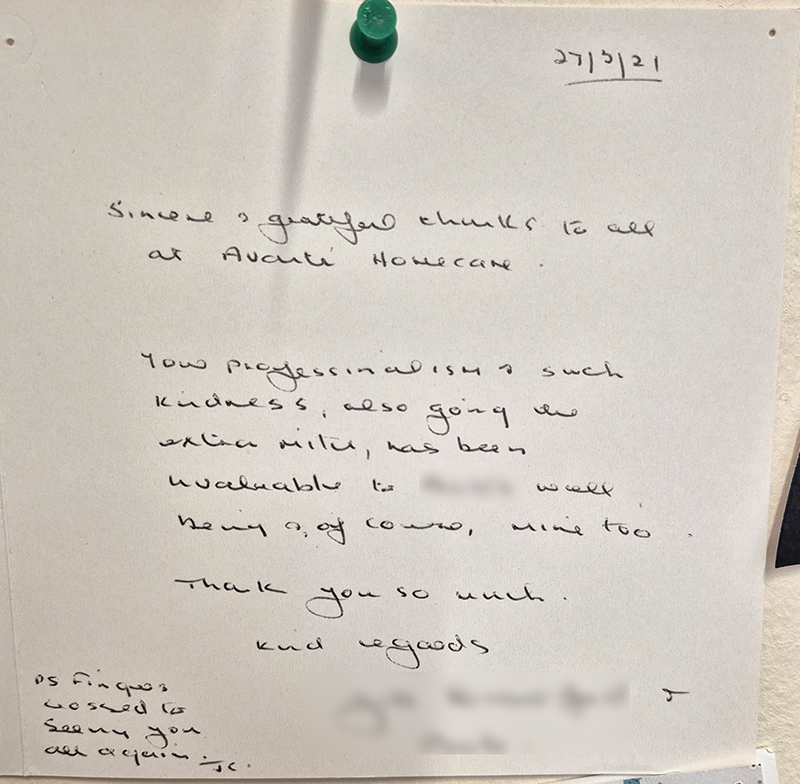 27/3/21
Sincere & grateful thanks to all
at Avanti Homecare.
Your professionalism & such
kindness, also going the
extra mile, has been
invaluable to well
being &, of course, mine too.
Thank you so much.
Kind regards
PS Fingers
crossed to
seeing you
all again.